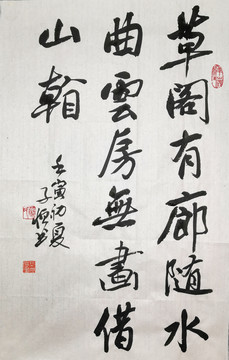 草閣有廊随水
曲雲房無畫借
山
壬寅初夏
子書